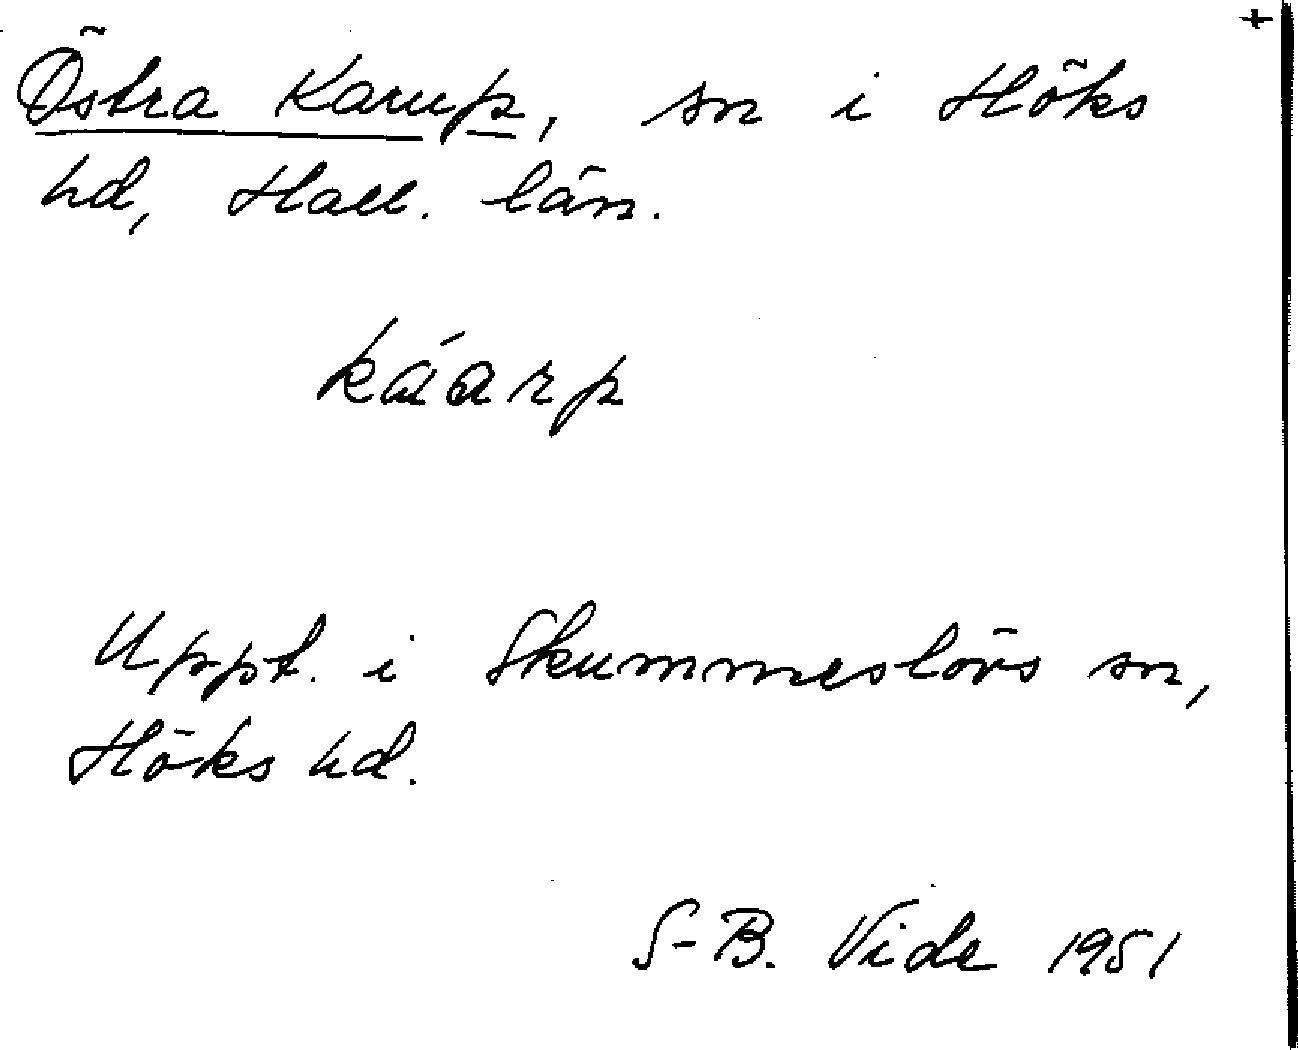 +
Östra Karup, sn i Höks
hd, Hall. län.
káarp
Uppt. i Skummeslövs sn,
Höks hd.
S-B. Vide 1951